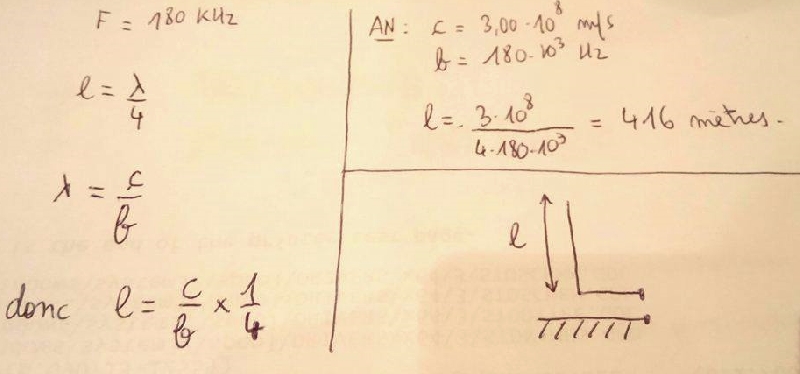 F = 180 KHz
l = λ/4
λ = c/f
donc l = c/f × 1/4
AN : c = 3,00 · 10⁸ m/s
f = 180 · 10³ Hz
l = 3 · 10⁸ / 4 · 180 · 10³ = 416 mètres.
l